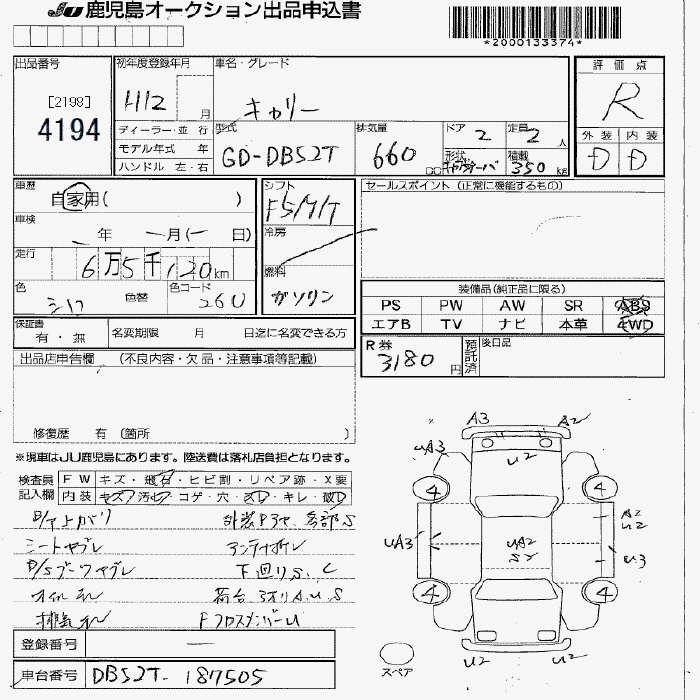 JU 鹿児島オークション出品申込書
*2000133374*
出品番号
[2198]
4194
初年度登録年月
H12 月
ディーラー・並行
モデル年式 年
ハンドル 左・右
車名・グレード
キャリー
型式
GD-DB52T
排気量
660 CC
ドア 2
定員 2 人
形状
積載 350 kg
評価点
R
外装 内装
D D
車歴
自家用( )
車検
年 月( 日)
走行
6万5千120km
色
シロ 色替
色コード
26U
シフト
F5M/T
冷房
燃料
ガソリン
セールスポイント (正常に機能するもの)
装備品(純正品に限る)
PS PW AW SR ABS
エアB TV ナビ 本革 4WD
保証書
有・無
名変期限 月 日迄に名変できる方
R券
3180円
預託済
後日品
出品店申告欄 (不良内容・欠品・注意事項等記載)
修復歴 有 (箇所 )
※現車はJU鹿児島にあります。陸送費は落札店負担となります。
検査員記入欄
FW キズ・飛石・ヒビ割・リペア跡・X要
内装 キズ・汚れ・コゲ・穴・スレ・キレ・破れ
シートヤブレ
D/Sブーツヤブレ
下回りS、C
荷台
登録番号 —
車台番号 DB52T-187505
A3 A2
U2
UA3
4 4
UA3
UA2
SY
A2
U2
U3
4 4
U2 U2
スペア